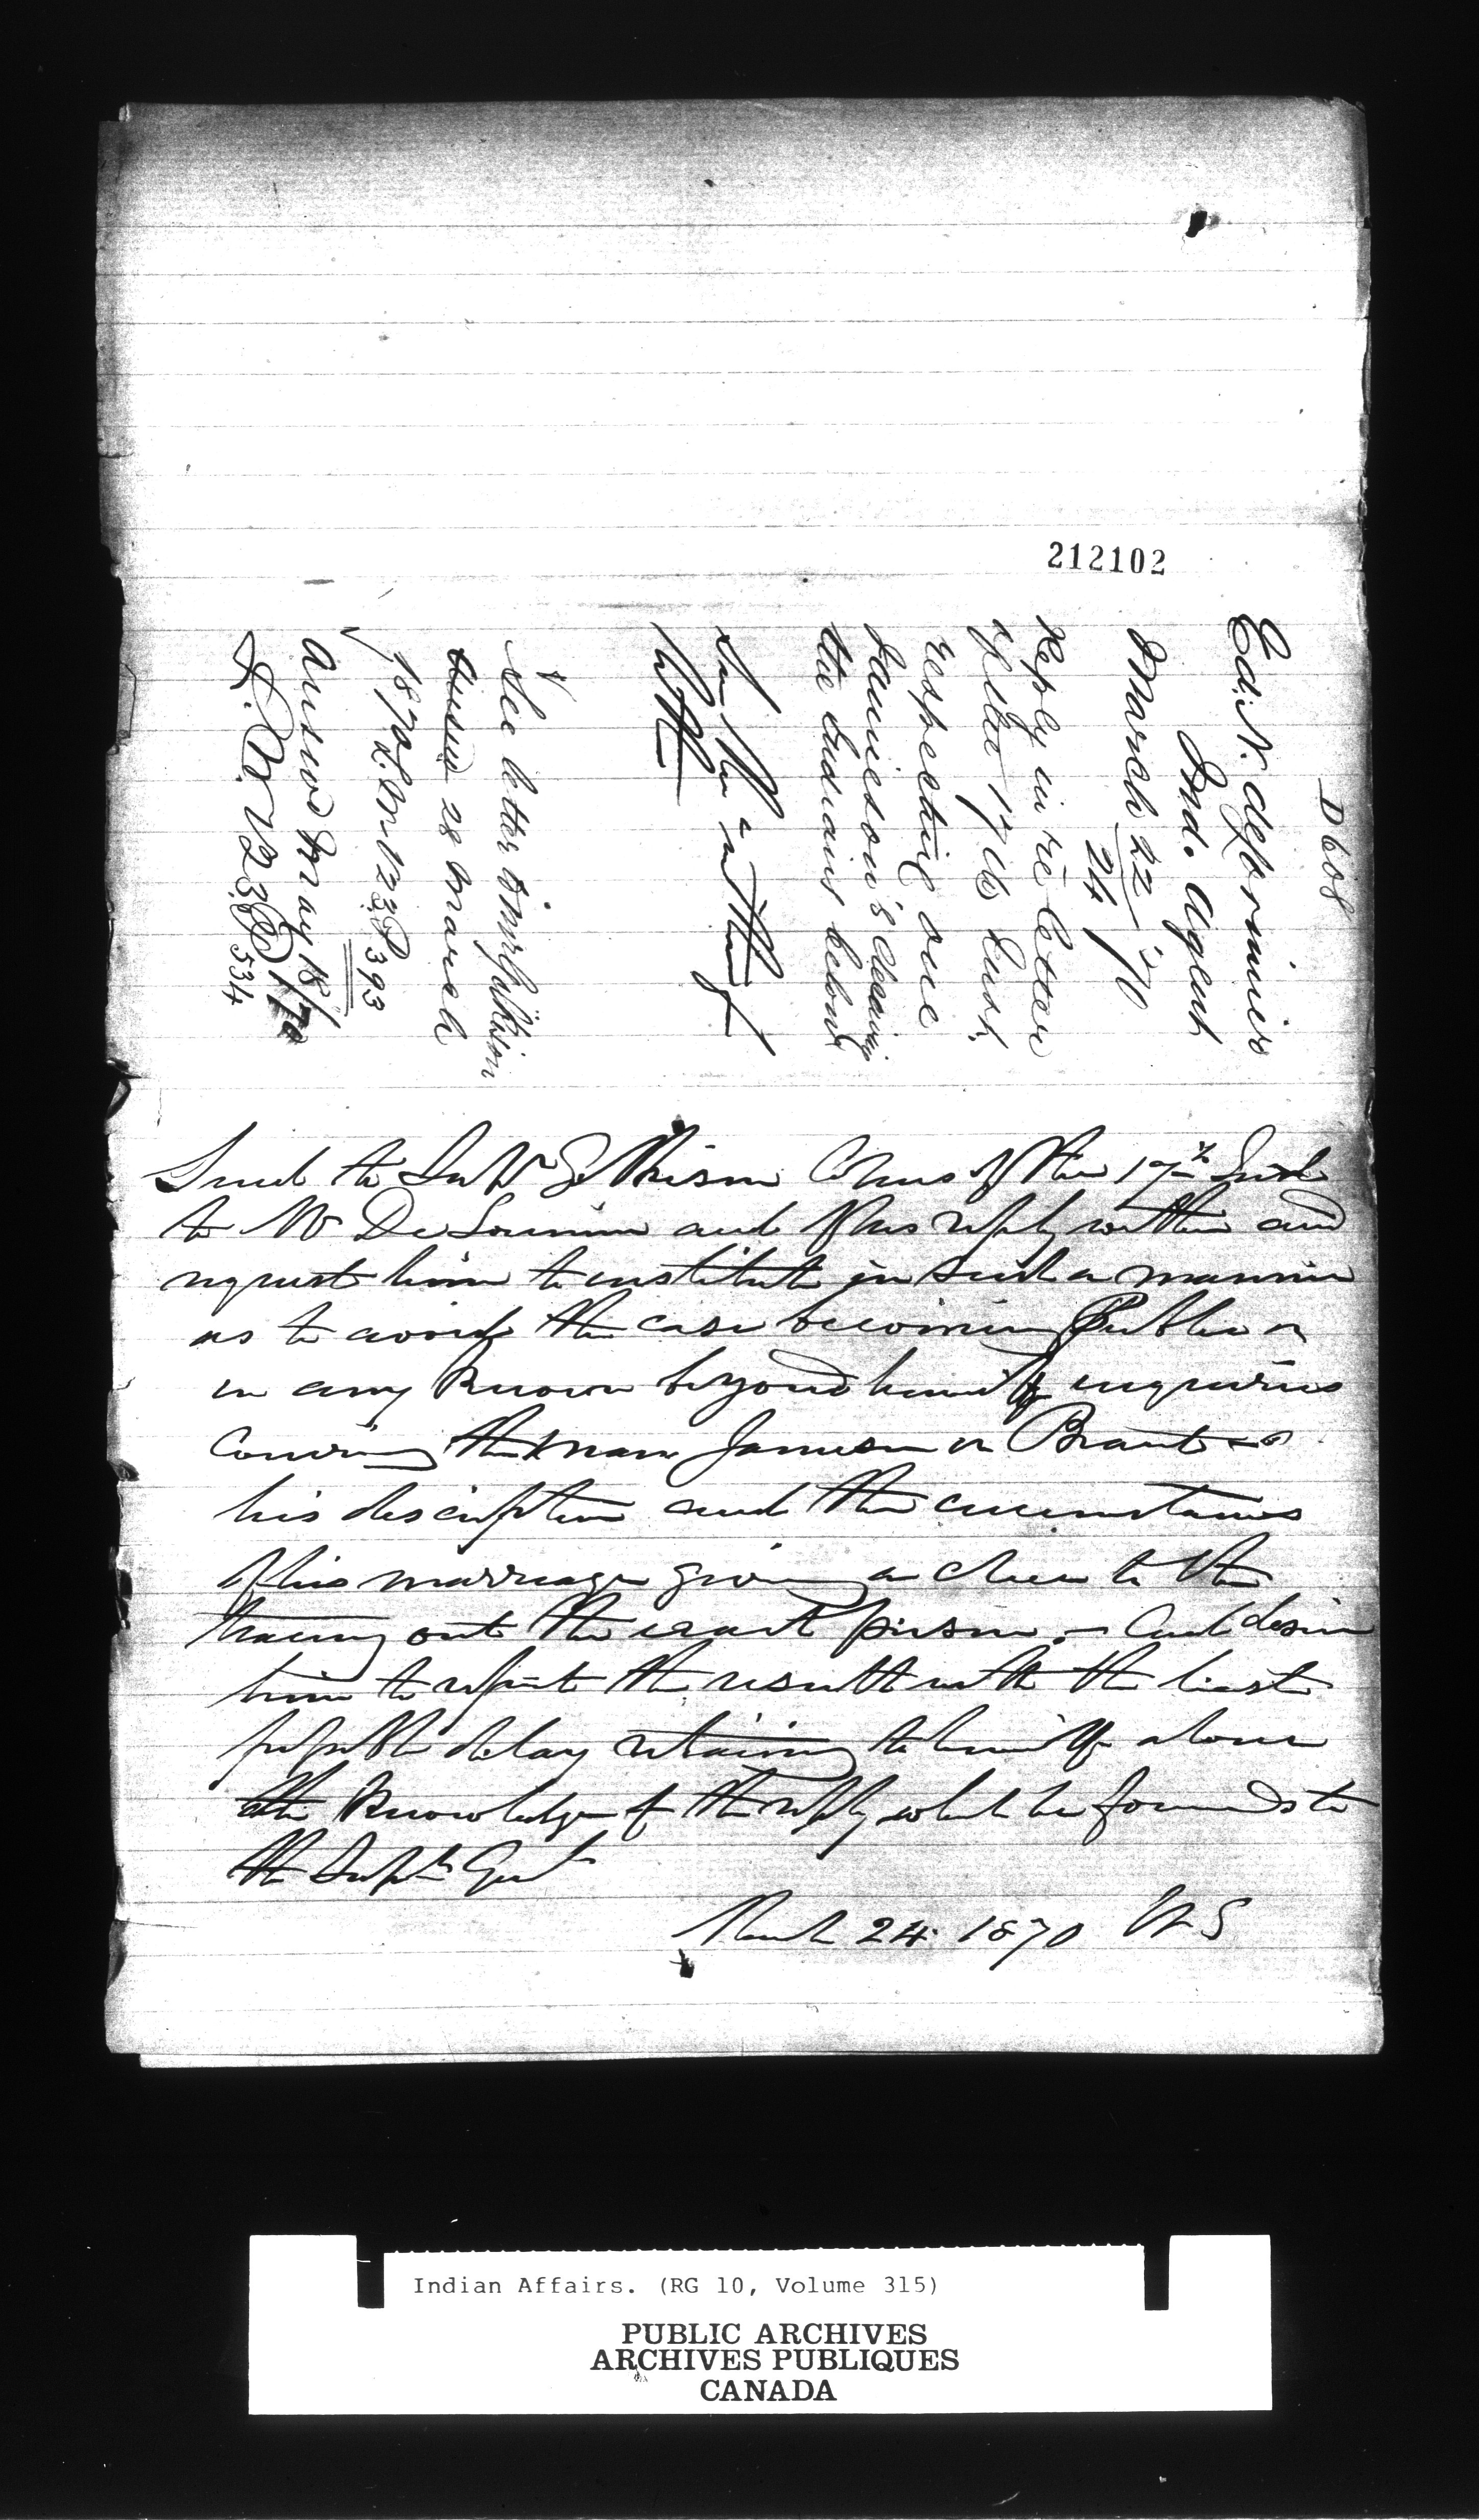 212102
D 608
Ed. N. deLorimier
Ind. Agent
March 22/24 /70
Reply in re letter
of the 17th Inst.
respecting one
Jamieson's being
the Indians
See letter
28 March
1870. L. B. No 23 P 393
Answd May 18/70
L. B. No 23 P 534
Send to Supt Gilkison Copies of the 17th Inst
to Mr DeLorimier and of his reply within and
request him to institute in such a manner
as to avoid the case becoming Public or
in any known beyond himself enquiries
the man Jamieson or Brant
his description and the circumstances
of his marriage giving a clue to the
tracing out the exact person. - And desire
him to report the result with the least
possible delay retaining to himself alone
the knowledge of the reply which he forwards to
the Supt Genl
March 24 1870 WS
Indian Affairs. (RG 10, Volume 315)
PUBLIC ARCHIVES
ARCHIVES PUBLIQUES
CANADA